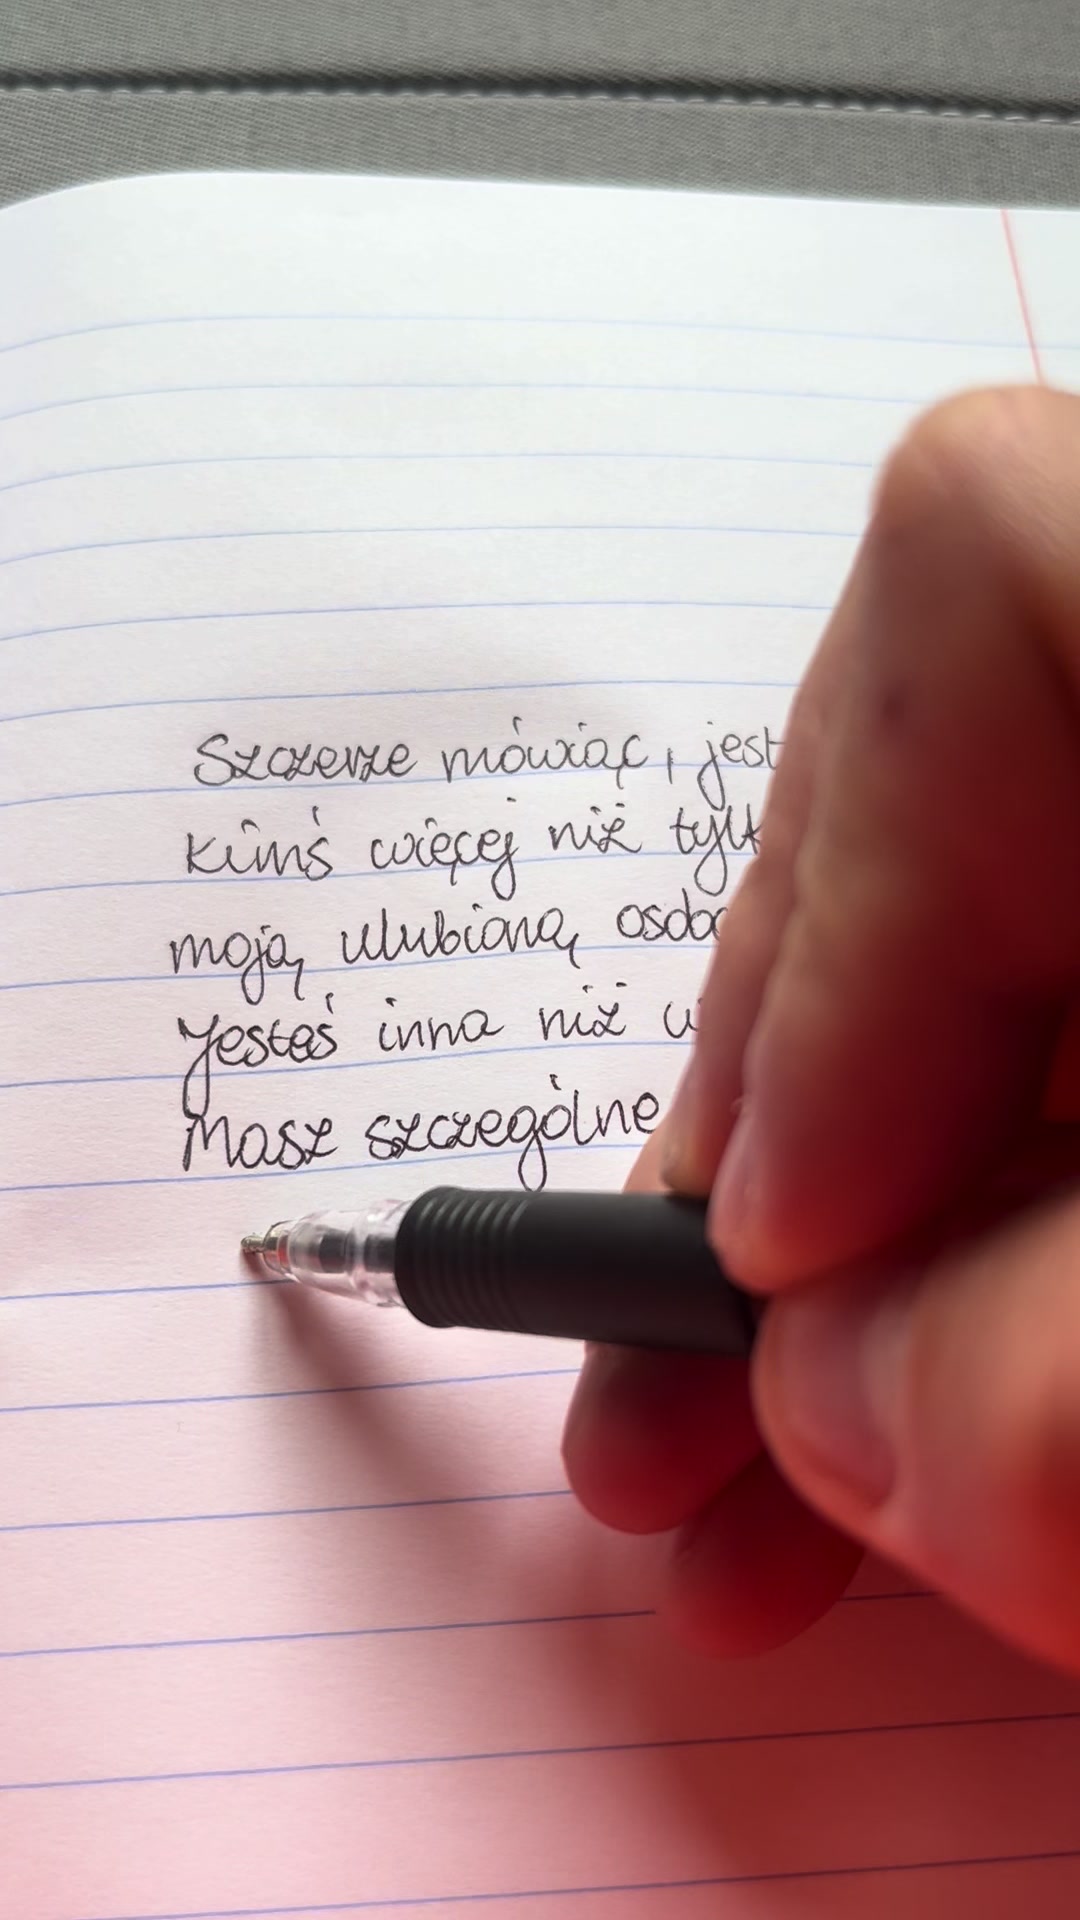 Szczerze mówiąc, jest
kimś więcej niż
moją ulubioną
Jesteś inna niż
Masz szczególne